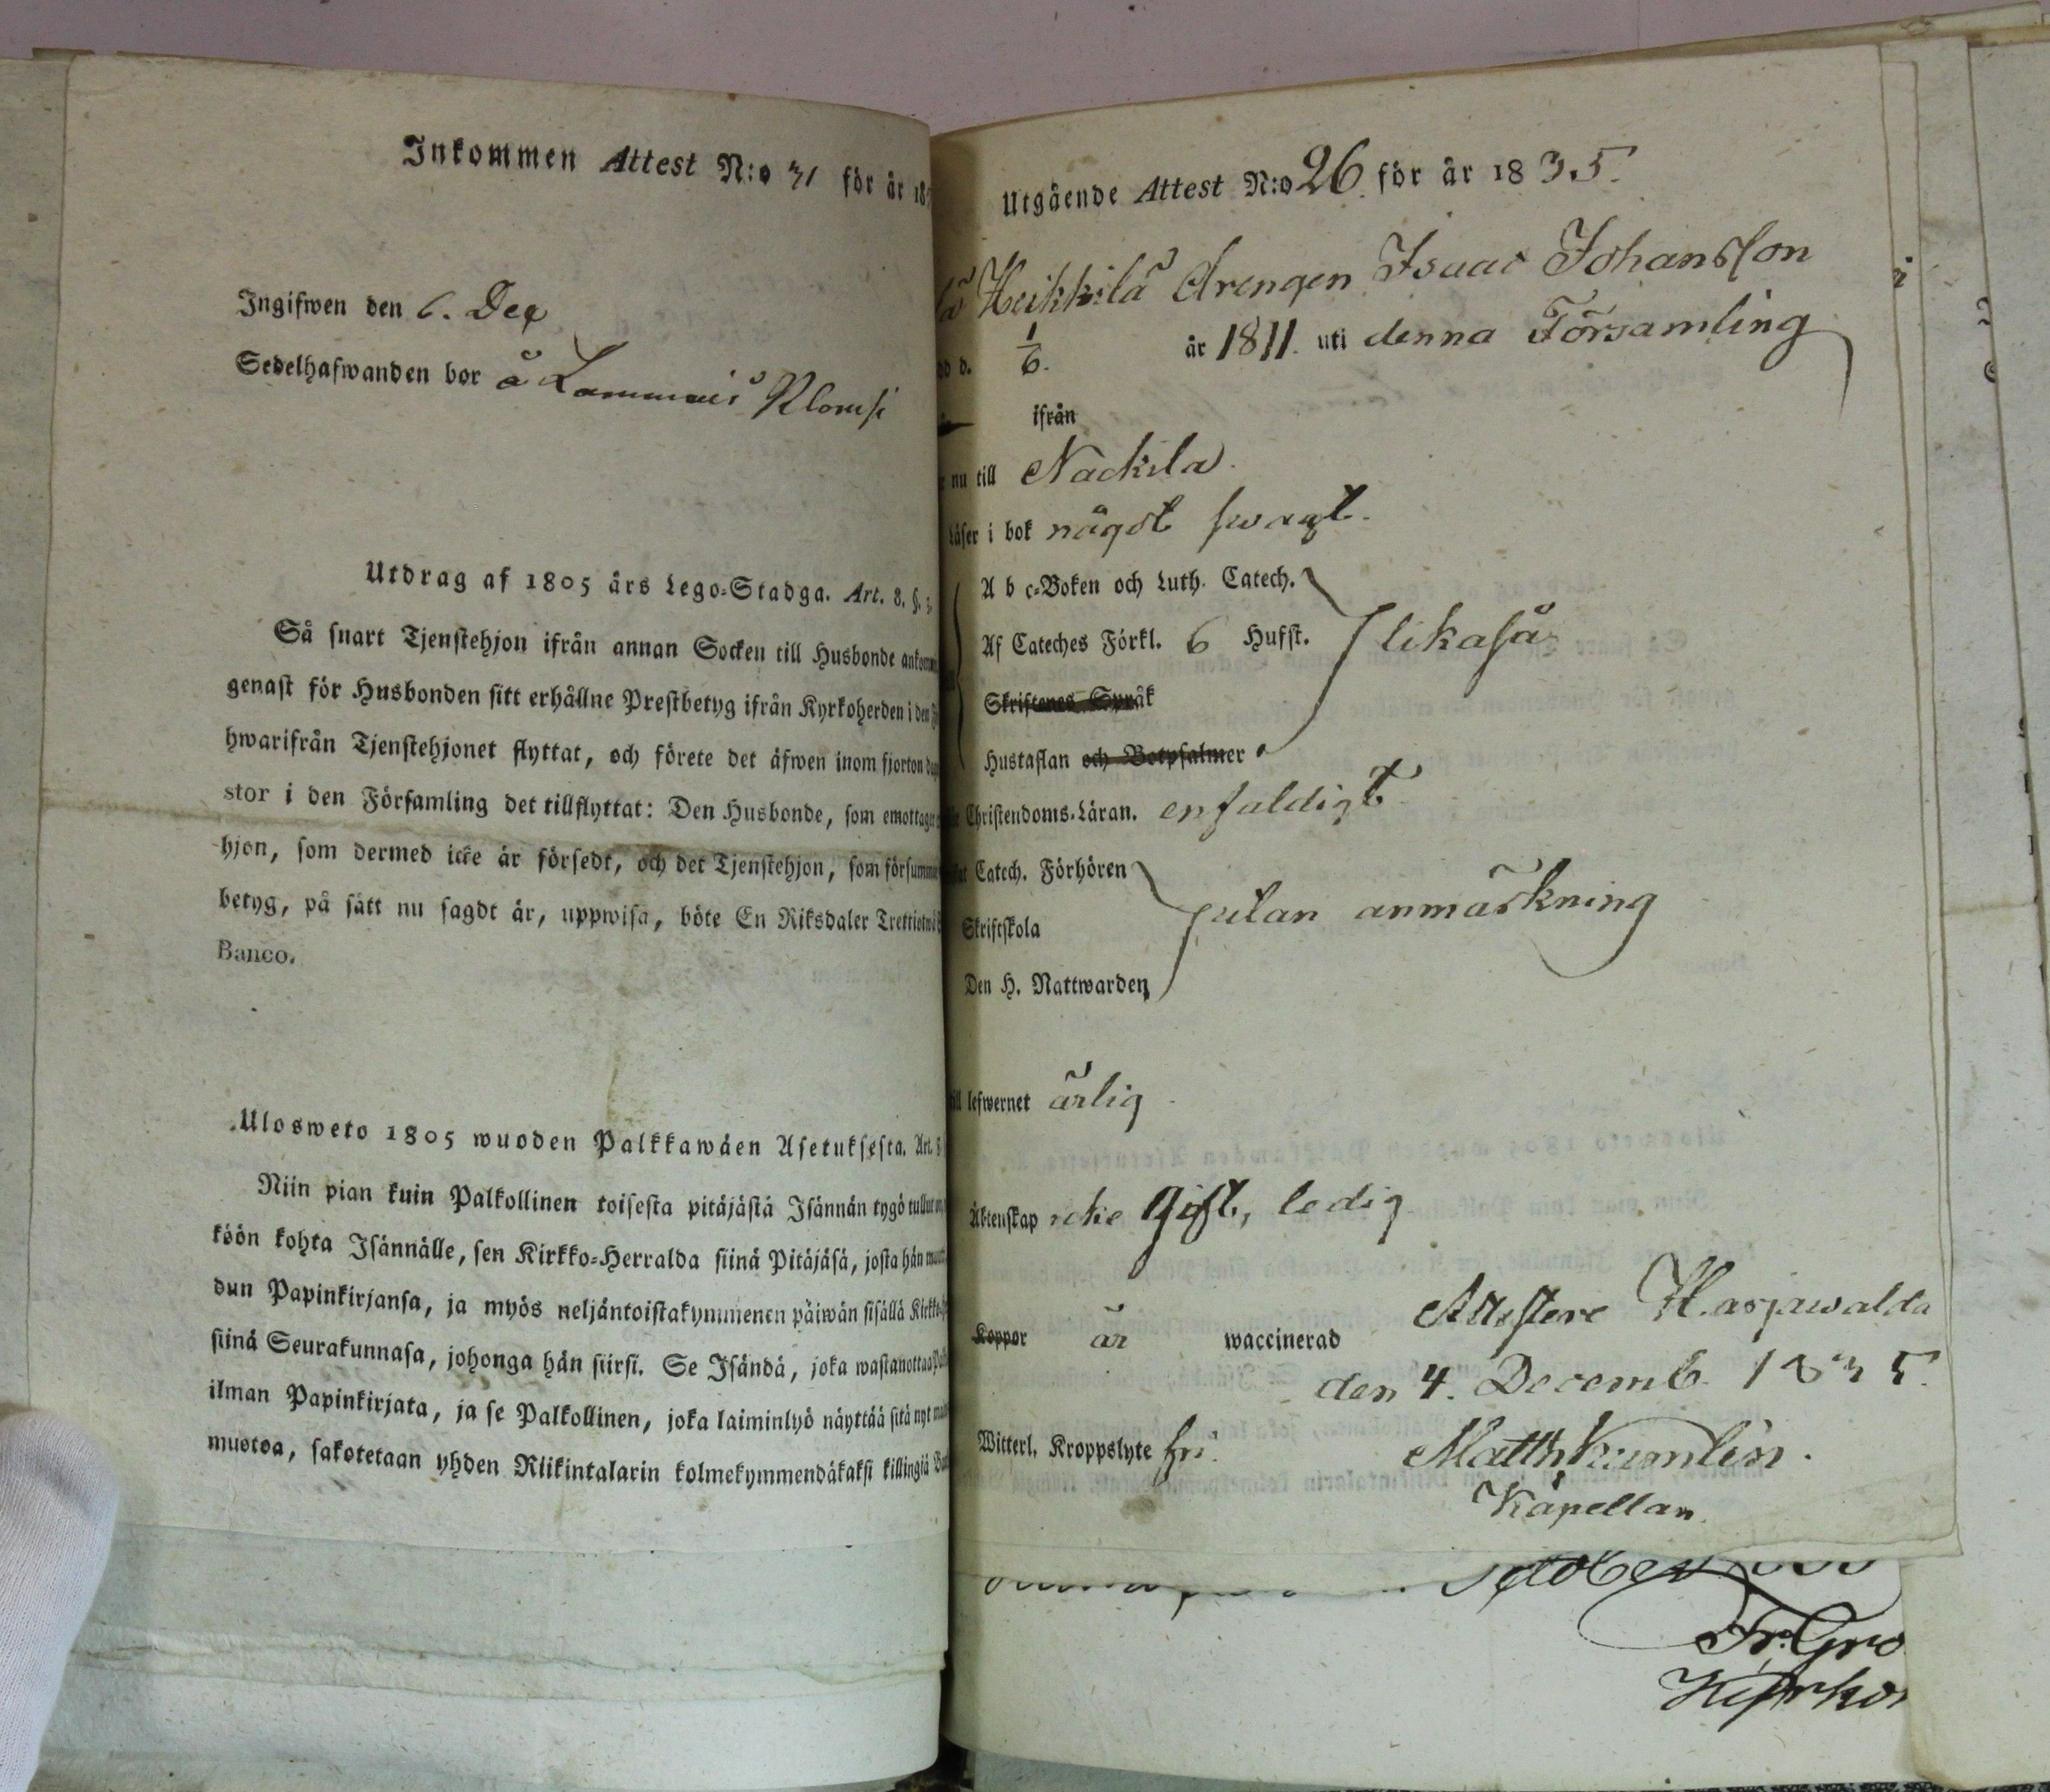 Inkommen Attest N:o 31 för år 18
Ingifwen den 6. Dec
Sedelhafwanden bor å Lammais
Utdrag af 1805 års Lego-Stadga. Art. 8. §.
Så snart Tjenstehjon ifrån annan Socken till Husbonde
genast för Husbonden sitt erhållne Prestbetyg ifrån Kyrkoherden i den
hwarifrån Tjenstehjonet flyttat, och förete det äfwen inom fjorton
stor i den Församling det tillflyttat: Den Husbonde, som emottager
hjon, som dermed icke är försedt, och det Tjenstehjon, som försumm
betyg, på sätt nu sagdt är, uppwisa, böte En Riksdaler Trettiotwå
Banco.
Ulosweto 1805 wuoden Palkkawäen Asetuksesta. Art. 8
Niin pian kuin Palkollinen toisesta pitäjästä Isännän tygö tullut
köön kohta Isännälle, sen Kirkko-Herralda siinä Pitäjäsä, josta hän
dun Papinkirjansa, ja myös neljäntoistakymmenen päiwän sisällä Kirkko
siinä Seurakunnasa, johonga hän siirsi. Se Isändä, joka wastanottaa
ilman Papinkirjata, ja se Palkollinen, joka laiminlyö näyttää sitä nyt
muotoa, sakotetaan yhden Riikintalarin kolmekymmendäkaksi killingiä
Utgående Attest N:o 26 för år 1835.
Heikkilä Drengen Isaac Johansson
dd d. 1/6. år 1811. uti denna Församling
ifrån
nu till Nackila
Läser i bok något swagt.
A b c-Boken och Luth. Catech.
Af Cateches Förkl. 6 Hufst. likaså
Skriftenes Språk
Hustaflan och Botpsalmer
Christendoms-Läran. enfaldigt
Catech. Förhören
Skriftskola utan anmärkning
Den H. Nattwarden
till lefwernet ärlig
Äktenskap icke gift, ledig
Koppor är waccinerad Attestere Harjawalda
den 4. Decemb. 1835.
Witterl. Kroppslyte fri. Matth Kumlin.
Kapellan.
Fr. Gro